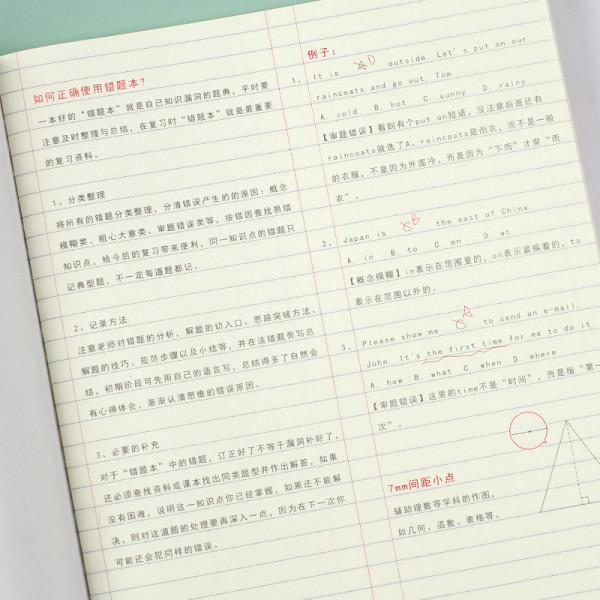 如何正确使用错题本?
一本好的“错题本”就是自己知识漏洞的题典,平时要
注意及时整理与总结,在复习时“错题本”就是最重要
的复习资料。
1、分类整理
将所有的错题分类整理,分清错误产生的的原因:概念
模糊类、粗心大意类、审题错误类等,按错因查找易错
知识点,给今后的复习带来便利,同一知识点的错题只
记典型题,不一定每道题都记。
2、记录方法
注意老师对错题的分析,解题的切入口、思路突破方法、
解题的技巧、规范步骤以及小结等,并在该错题旁写总
结,初期阶段可先用自己的语言写,总结得多了自然会
有心得体会,渐渐认清思维的错误原因。
3、必要的补充
对于“错题本”中的错题,订正好了不等于漏洞补好了,
还必须查找资料或课本找出同类题型并作出解答,如果
没有困难,说明这一知识点你已经掌握,如果还不能解
决,则对这道题的处理要再深入一点,因为在下一次你
可能还会犯同样的错误。
例子:
1、It is A D outside. Let's put on our
raincoats and go out, Tom.
A. sold B. hot C. sunny D. rainy
【审题错误】看到有个put on短语,没注意后面还有
raincoats就选了A。raincoats是雨衣,而不是一般
的衣服,不是因为外面冷,而是因为“下雨”才穿“雨
衣”。
2、Japan is C B the east of China.
A. in B. to C. on D. at
【概念模糊】in表示在范围里的,on表示紧挨着的,to
表示在范围以外的。
3、Please show me C A to send an e-mail,
John. It's the first time for me to do it
A. how B. what C. when D. where
【审题错误】这里的time不是“时间”,而是指“第一
次”。
7mm间距小点
辅助理数等学科的作图,
如几何,函数、表格等。